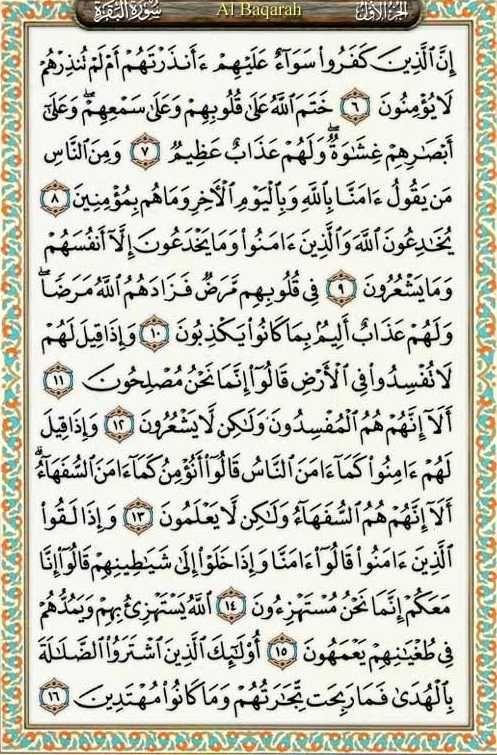 سُورَةُ البَقَرَةِ Al Baqarah الجُزْءُ الأَوَّلُ
إِنَّ ٱلَّذِينَ كَفَرُوا۟ سَوَآءٌ عَلَيْهِمْ ءَأَنذَرْتَهُمْ أَمْ لَمْ تُنذِرْهُمْ
لَا يُؤْمِنُونَ ٦ خَتَمَ ٱللَّهُ عَلَىٰ قُلُوبِهِمْ وَعَلَىٰ سَمْعِهِمْ ۖ وَعَلَىٰٓ
أَبْصَـٰرِهِمْ غِشَـٰوَةٌ ۖ وَلَهُمْ عَذَابٌ عَظِيمٌ ٧ وَمِنَ ٱلنَّاسِ
مَن يَقُولُ ءَامَنَّا بِٱللَّهِ وَبِٱلْيَوْمِ ٱلْـَٔاخِرِ وَمَا هُم بِمُؤْمِنِينَ ٨
يُخَـٰدِعُونَ ٱللَّهَ وَٱلَّذِينَ ءَامَنُوا۟ وَمَا يَخْدَعُونَ إِلَّآ أَنفُسَهُمْ
وَمَا يَشْعُرُونَ ٩ فِى قُلُوبِهِم مَّرَضٌ فَزَادَهُمُ ٱللَّهُ مَرَضًا ۖ
وَلَهُمْ عَذَابٌ أَلِيمٌۢ بِمَا كَانُوا۟ يَكْذِبُونَ ١٠ وَإِذَا قِيلَ لَهُمْ
لَا تُفْسِدُوا۟ فِى ٱلْأَرْضِ قَالُوٓا۟ إِنَّمَا نَحْنُ مُصْلِحُونَ ١١
أَلَآ إِنَّهُمْ هُمُ ٱلْمُفْسِدُونَ وَلَـٰكِن لَّا يَشْعُرُونَ ١٢ وَإِذَا قِيلَ
لَهُمْ ءَامِنُوا۟ كَمَآ ءَامَنَ ٱلنَّاسُ قَالُوٓا۟ أَنُؤْمِنُ كَمَآ ءَامَنَ ٱلسُّفَهَآءُ ۗ
أَلَآ إِنَّهُمْ هُمُ ٱلسُّفَهَآءُ وَلَـٰكِن لَّا يَعْلَمُونَ ١٣ وَإِذَا لَقُوا۟
ٱلَّذِينَ ءَامَنُوا۟ قَالُوٓا۟ ءَامَنَّا وَإِذَا خَلَوْا۟ إِلَىٰ شَيَـٰطِينِهِمْ قَالُوٓا۟ إِنَّا
مَعَكُمْ إِنَّمَا نَحْنُ مُسْتَهْزِءُونَ ١٤ ٱللَّهُ يَسْتَهْزِئُ بِهِمْ وَيَمُدُّهُمْ
فِى طُغْيَـٰنِهِمْ يَعْمَهُونَ ١٥ أُو۟لَـٰٓئِكَ ٱلَّذِينَ ٱشْتَرَوُا۟ ٱلضَّلَـٰلَةَ
بِٱلْهُدَىٰ فَمَا رَبِحَت تِّجَـٰرَتُهُمْ وَمَا كَانُوا۟ مُهْتَدِينَ ١٦